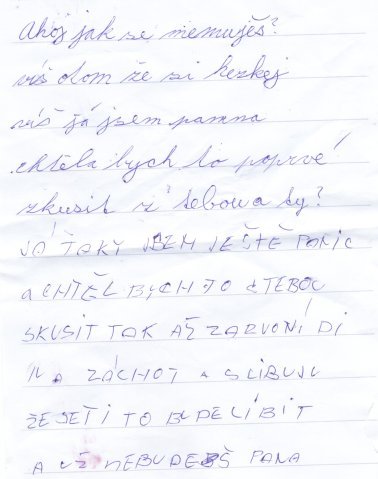 Ahoj jak se memuješ?
víš olom že si hezkej
víš já jsem pamna
chtěla bych to poprvé
zkusit s tebow a ty?
JÁ TAKY JSEM JEŠTĚ PANIC
a CHTĚL BYCH TO STEBOU
SKUSIT TAK AŽ ZARVONÍ DI
NA ZÁCHOT A SLIBUJU
ŽE SETI TO BUDE LÍBIT
A UŽ NEBUDEŠ PANA